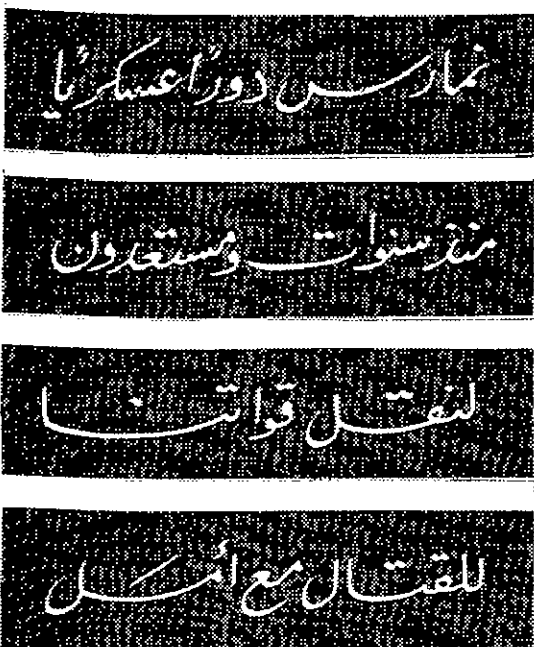 نمارس دورًا عسكريًا
منذ سنوات ومستعدون
لنقل قواتنا
للقتال مع أمل